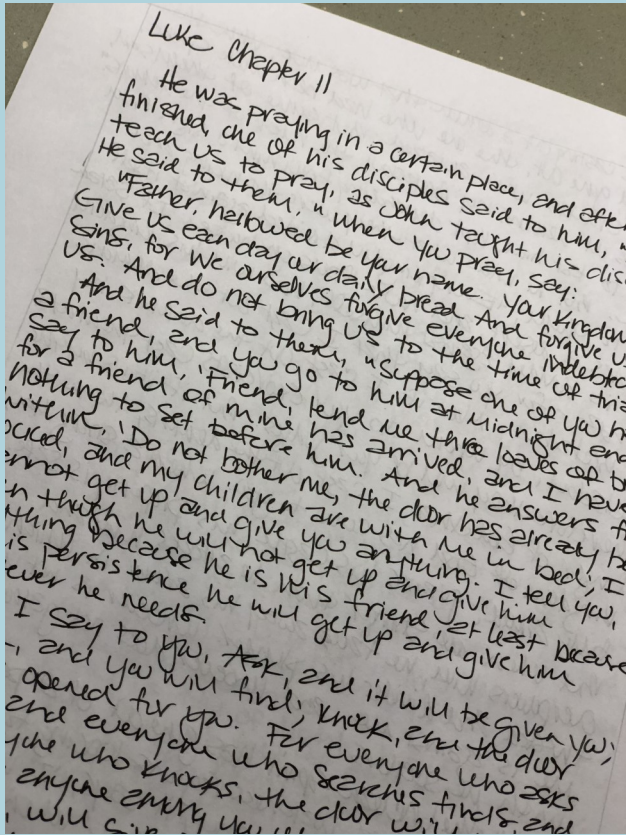 Luke Chapter 11
He was praying in a certain place, and after
finished, one of his disciples said to him, "
teach us to pray, as John taught his dis
He said to them, "when you pray, say:
"Father, hallowed be your name. Your Kingdom
Give us each day our daily bread. And forgive u
sins, for we ourselves forgive everyone indebted
us. And do not bring us to the time of tria
And he said to them, "Suppose one of you h
a friend, and you go to him at midnight and
say to him, 'Friend, lend me three loaves of br
for a friend of mine has arrived, and I have
nothing to set before him. And he answers f
within, 'Do not bother me, the door has already be
ocked, and my children are with me in bed; I
annot get up and give you anything. I tell you,
n though he will not get up and give him
ything because he is his friend, at least because
is persistence he will get up and give him
ever he needs.
I say to you, Ask, and it will be given you;
, and you will find; knock, and the door
opened for you. For everyone who asks
and everyone who searches finds and
yone who knocks, the door wi
anyone among you
will